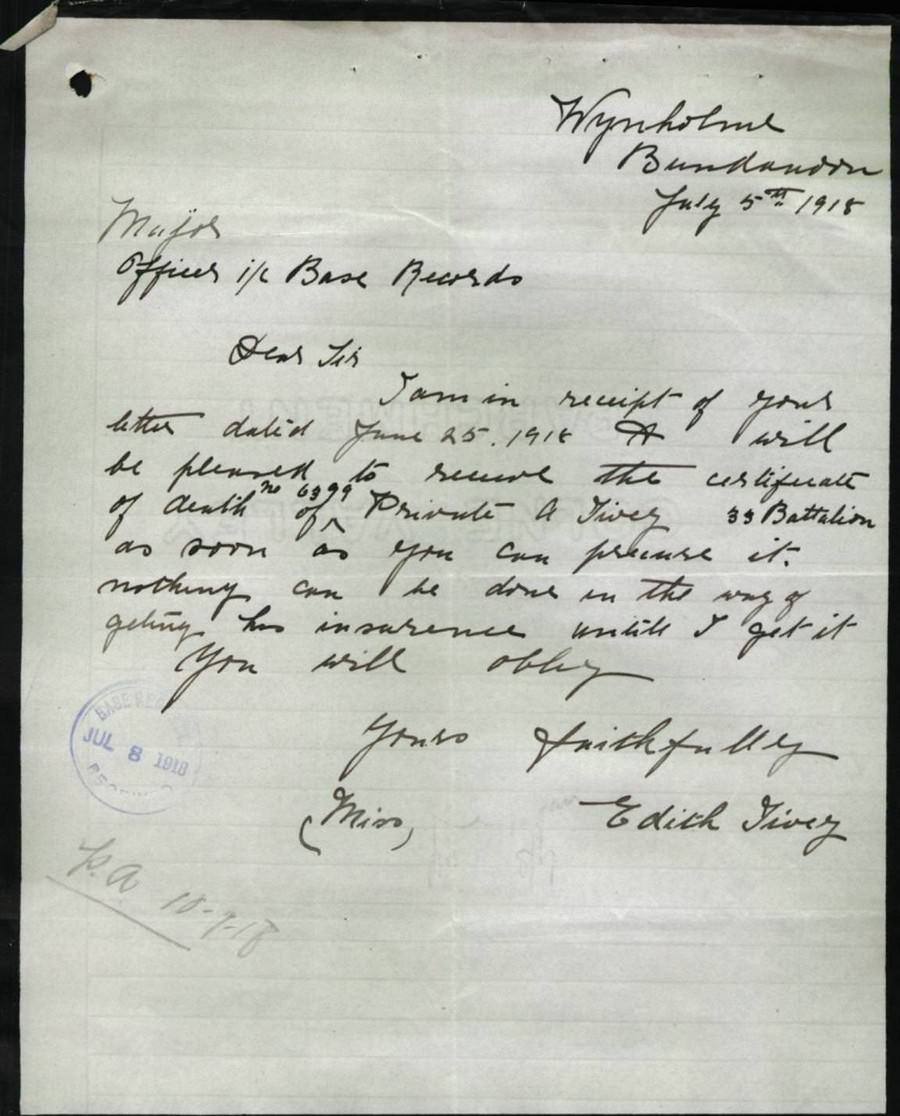 Wynholme
Bundanoon
July 5th 1918
Major
Officer i/c Base Records
Dear Sir
I am in receipt of your
letter dated June 25. 1918 & will
be pleased to receive the certificate
of death of no 6399 Private A Tivey 33 Battalion
as soon as you can procure it.
nothing can be done in the way of
geting his insurence untill I get it
You will oblig
Yours faithfully
(Miss) Edith Tivey
BASE REC
JUL 8 1918
P.A 10-7-18